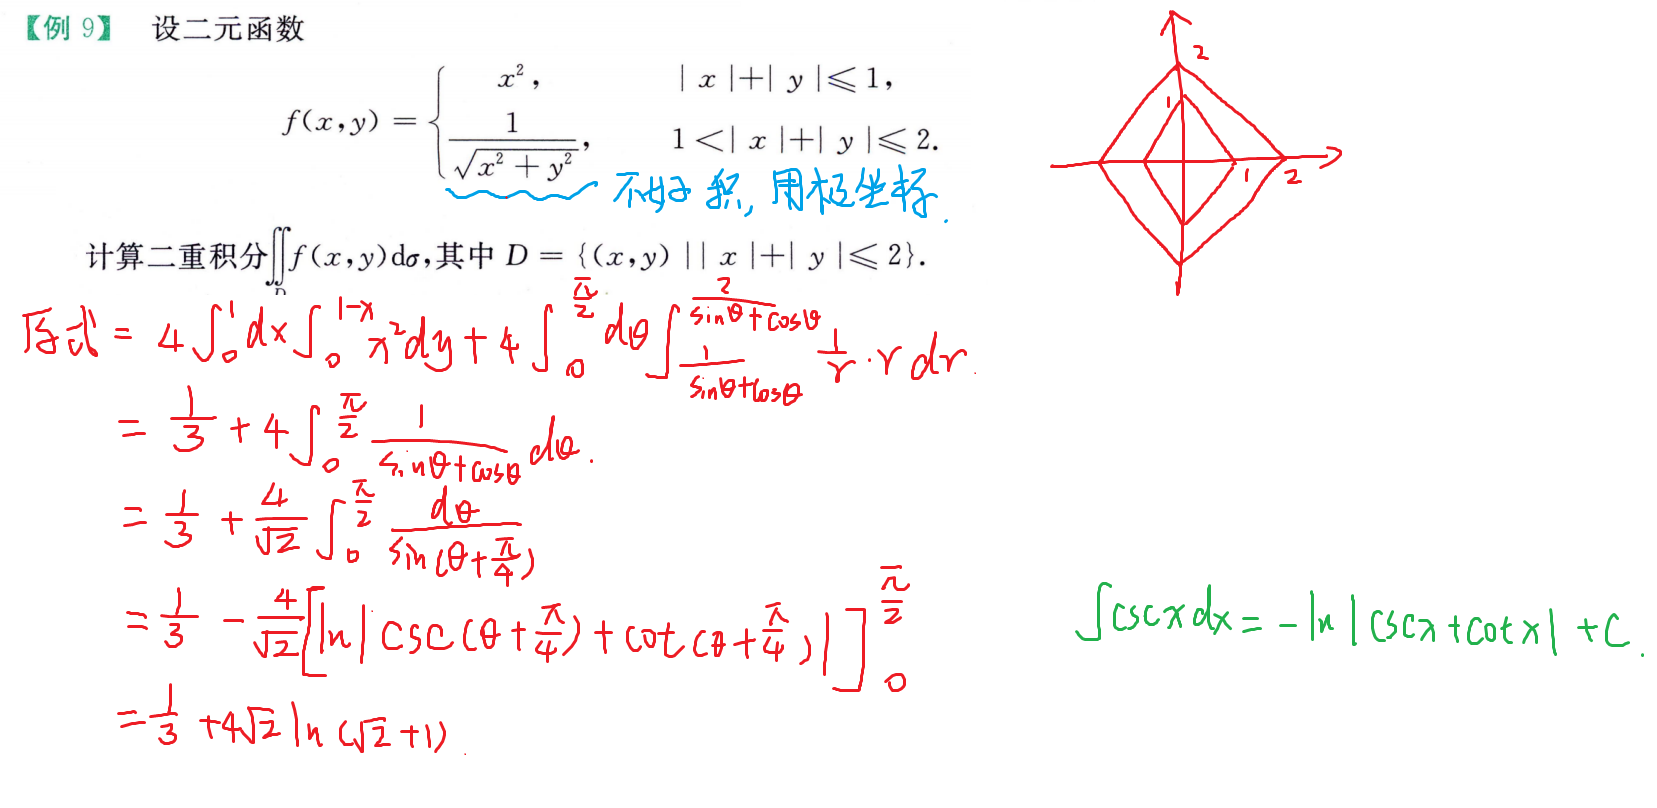 【例 9】 设二元函数
f(x,y) = { x², |x|+|y|≤1,
1/√(x²+y²), 1<|x|+|y|≤2.
不好积, 用极坐标.
计算二重积分∬_D f(x,y)dσ,其中 D = {(x,y) | |x|+|y|≤2}.
原式 = 4∫₀¹dx∫₀^(1-x) x²dy + 4∫₀^(π/2) dθ∫_(1/(sinθ+cosθ))^(2/(sinθ+cosθ)) 1/r · r dr.
= 1/3 + 4∫₀^(π/2) 1/(sinθ+cosθ) dθ.
= 1/3 + 4/√2 ∫₀^(π/2) dθ/sin(θ+π/4)
= 1/3 - 4/√2 [ln|csc(θ+π/4)+cot(θ+π/4)|]₀^(π/2)
= 1/3 + 4√2 ln(√2+1).
2
1
1 2
∫cscxdx = -ln|cscx+cotx|+C.